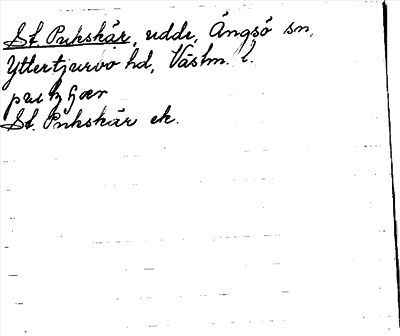 St. Pukskär, udde, Ängsö sn,
Yttertjurbo hd, Västm. l.
St. Pukskär ek.